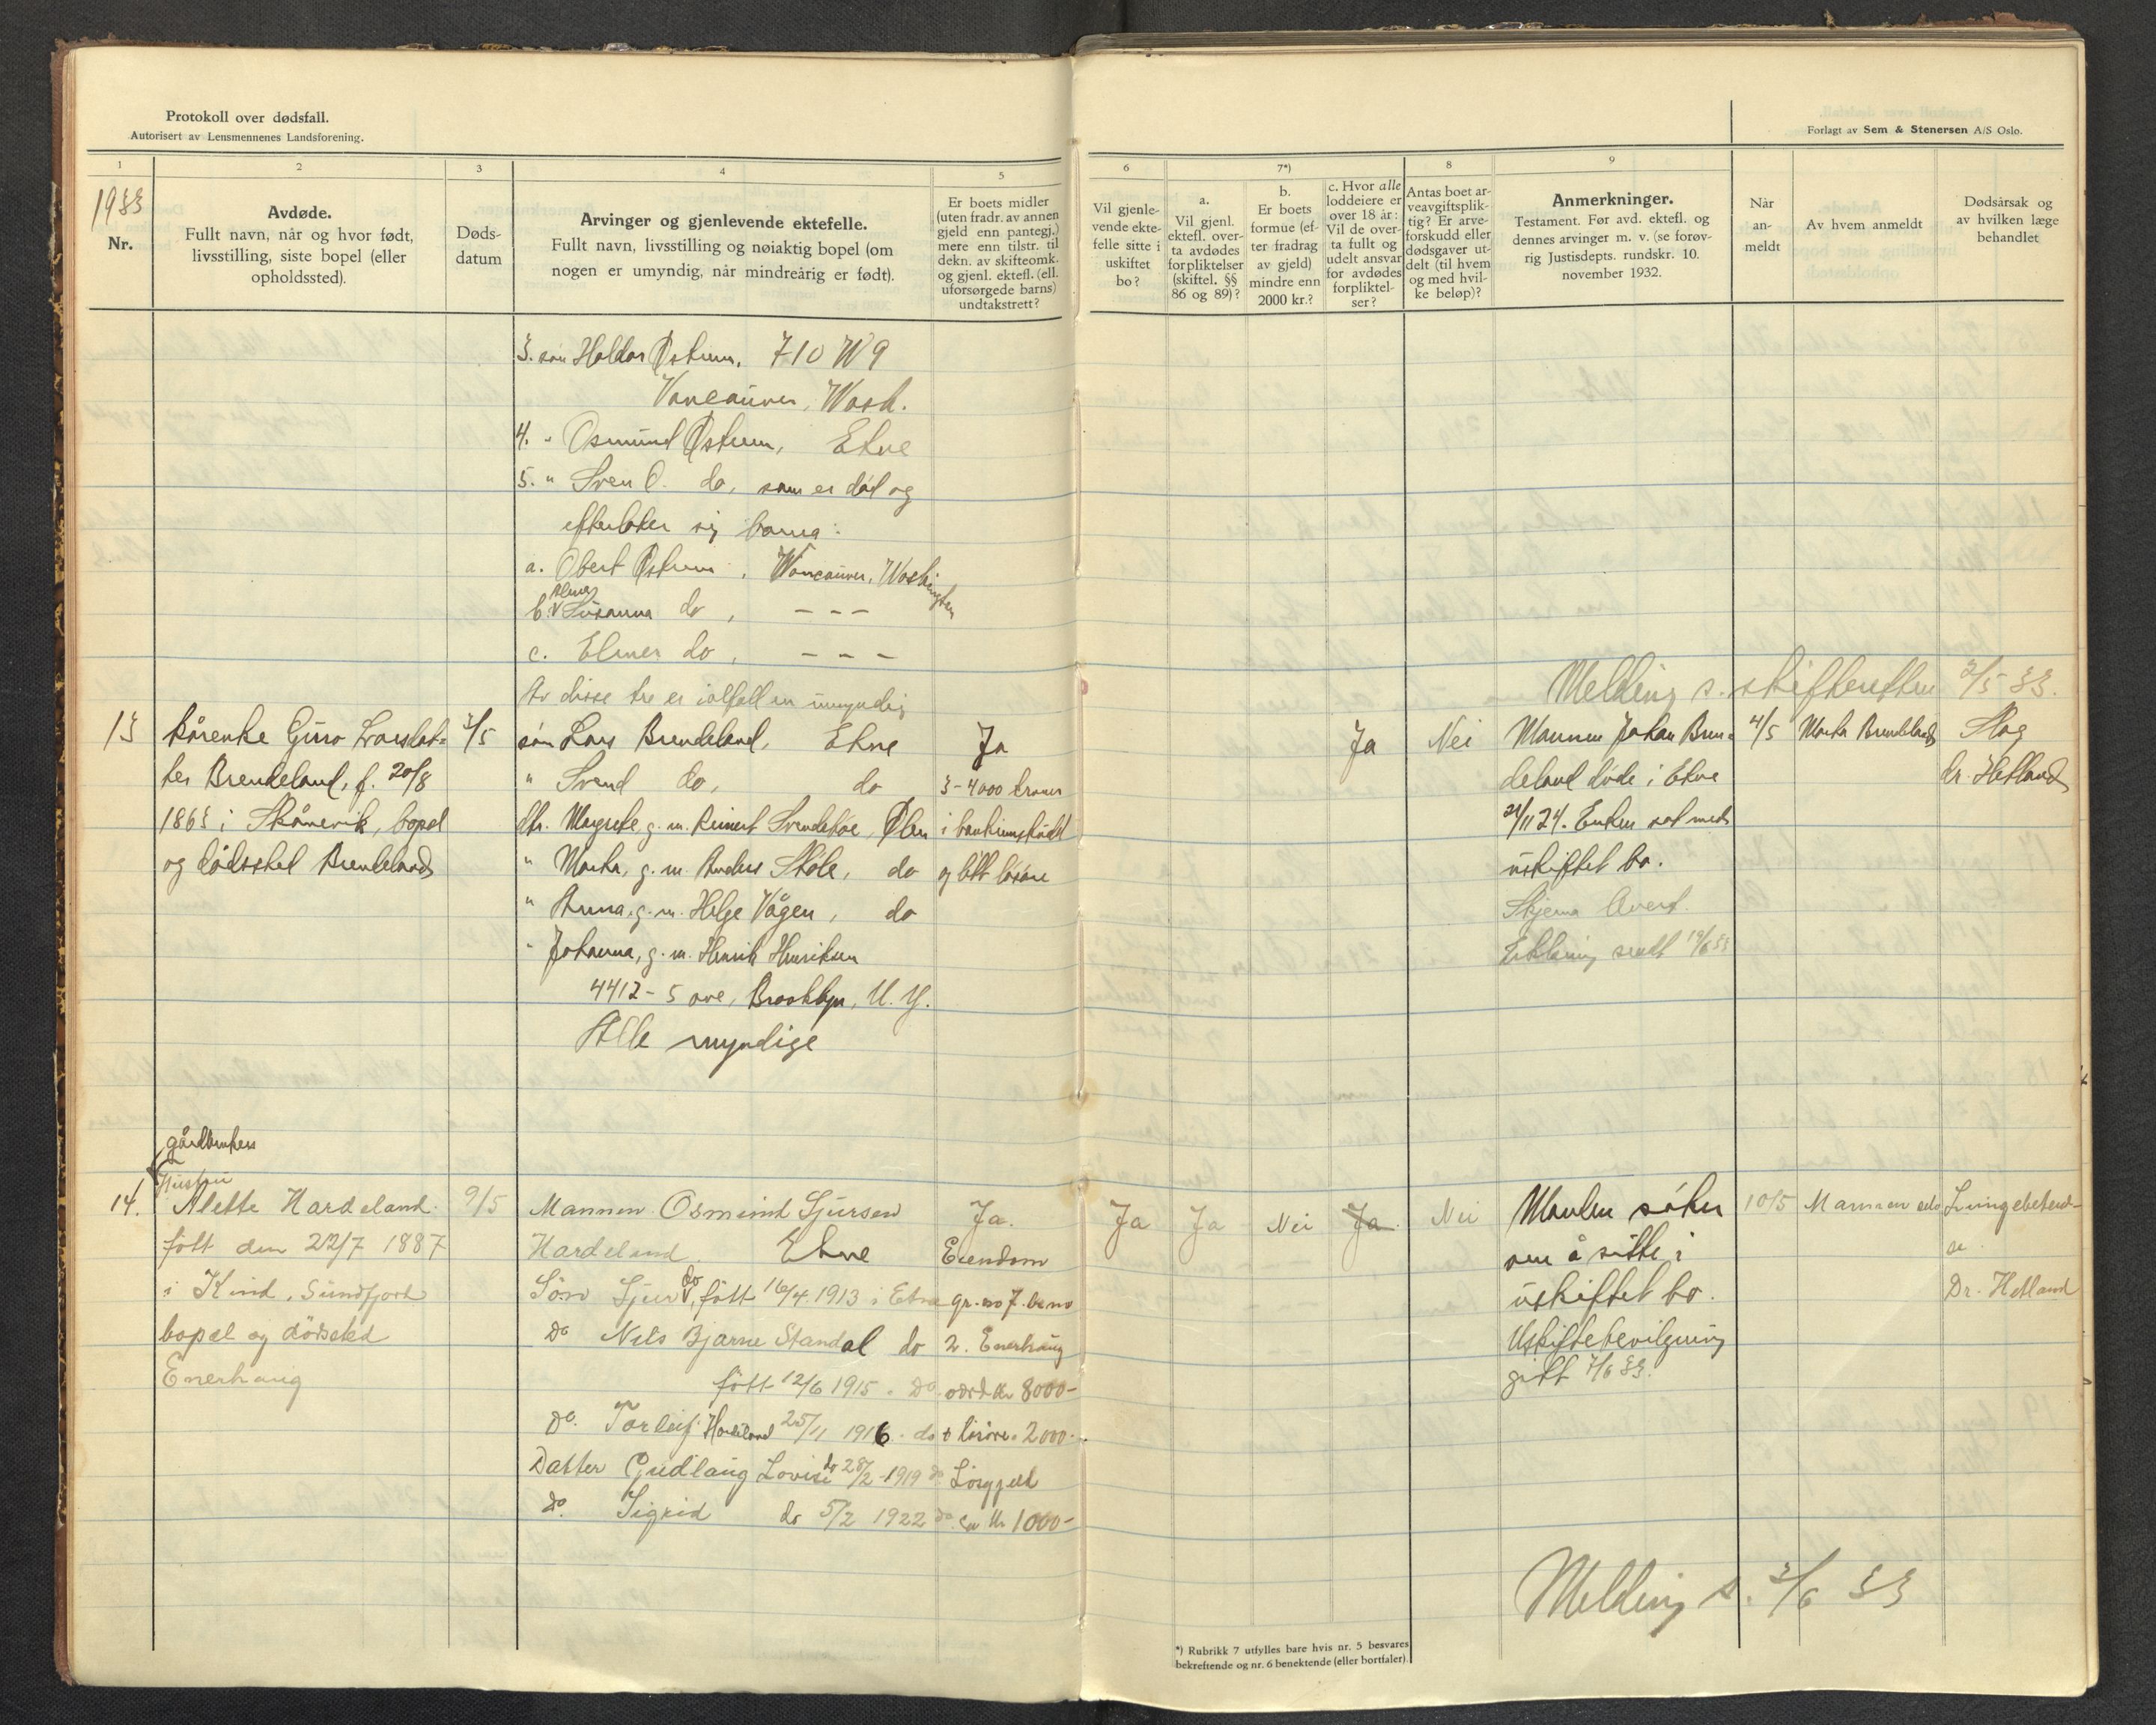 Protokoll over dødsfall.
Autorisert av Lensmennenes Landsforening.
Forlagt av Sem & Stenersen A/S Oslo.
1
2
3
4
5
6
7*)
8
9
1933
Nr.
Avdøde.
Fullt navn, når og hvor født,
livsstilling, siste bopel (eller
opholdssted).
Døds-
datum
Arvinger og gjenlevende ektefelle.
Fullt navn, livsstilling og nøiaktig bopel (om
nogen er umyndig, når mindreårig er født).
Er boets midler
(uten fradr. av annen
gjeld enn pantegj.)
mere enn tilstr. til
dekn. av skifteomk.
og gjenl. ektefl. (ell.
uforsørgede barns)
undtakstrett?
Vil gjenle-
vende ekte-
felle sitte i
uskiftet
bo?
a.
Vil gjenl.
ektefl. over-
ta avdødes
forpliktelser
(skiftel. §§
86 og 89)?
b.
Er boets
formue (ef-
ter fradrag
av gjeld)
mindre enn
2000 kr.?
c. Hvor alle
loddeiere er
over 18 år:
Vil de over-
ta fullt og
udelt ansvar
for avdødes
forpliktel-
ser?
Antas boet ar-
veavgiftsplik-
tig? Er arve-
forskudd eller
dødsgaver ut-
delt (til hvem
og med hvil-
ke beløp)?
Anmerkninger.
Testament. Før avd. ektefl. og
dennes arvinger m. v. (se forøv-
rig Justisdepts. rundskr. 10.
november 1932.
Når
an-
meldt
Av hvem anmeldt
Dødsårsak og
av hvilken læge
behandlet
3. søn Haldor Østrem, 710 W 9
Vancauver, Wash.
4. " Osmund Østrem, Etne
5. " Sven O. do, som er død og
efterlater sig barna:
a. Obert Østrem, Wancauver, Washington
b. Alma Susanna do, - - -
c. Elmer do, - - -
Av disse tre er ialfall en umyndig
Melding s. skifteretten 3/5 33.
13
Kårenke Guro Larsdat-
ter Brendeland, f. 20/8
1863 i Skånevik, bopel
og dødssted Brendeland
3/5
søn Lars Brendeland, Etne
" Svend do, do
dtr. Margrete, g. m. Reinert Svendsbøe, Ølen
" Marta, g. m. Anders Støle, do
" Anna, g. m. Helge Vågen, do
" Johanna, g. m. Henrik Henriksen
4412 - 5 ave, Brooklyn, N. Y.
Alle myndige
Ja
3-4000 kroner
i bankinnskudd
og litt løsøre
Ja
Nei
Mannen Johan Bren-
deland døde i Etne
21/11 24. Enken sat med
uskiftet bo.
Skjema Avert.
Erklæring sendt 19/6 33
4/5
Marta Brendeland
Slag
dr. Hetland
14.
gårdbrukers
Hustru
Alette Hardeland.
född den 22/7 1887
i Kind, Sundfjord
bopæl og dödssted
Enerhaug
9/5
Mannen Osmund Sjursen
Hardeland Etne
Sönn Sjur do, född 16/4 1913 i Etne
do Nils Bjarne Standal do
född 12/6 1915. do.
do. Torleif Hardeland 25/11 1916. do
Datter Gudlaug Lovise do 28/2-1919 do.
do. Sigrid do 5/2 1922 do.
Ja.
Eiendom
gr. no 7. br no
2. Enerhaug
værd kr 8000-
+ lösöre. 2000-
Lösgjeld
ca kr 1000-
Ja
Ja
Nei
Ja
Nei
Manden söker
om å sitte i
uskiftet bo.
Uskiftebevilgning
gitt 7/6 33.
10/5
Mannen
Lungebetend-
se.
Dr. Hetland
Melding s. 3/6 33
*) Rubrikk 7 utfylles bare hvis nr. 5 besvares
bekreftende og nr. 6 benektende (eller bortfaler).